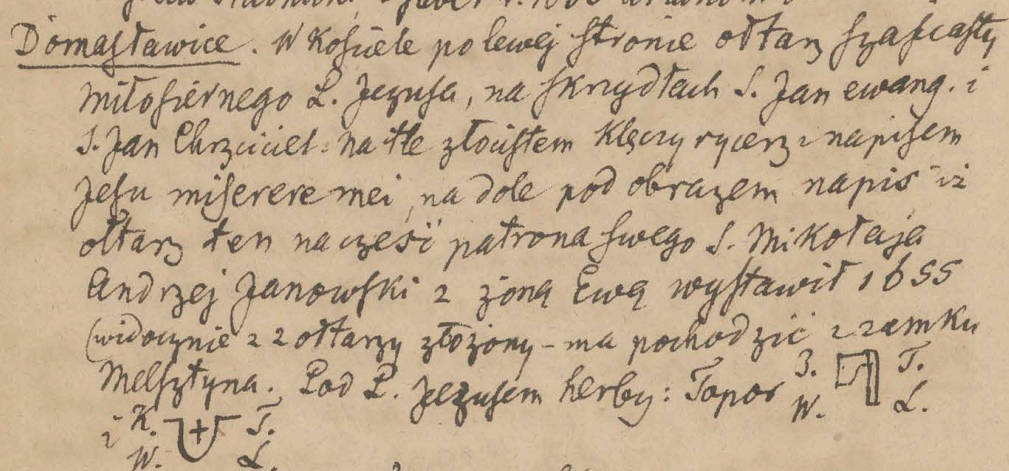 Domasławice. W kościele po lewej stronie ołtarz szafiasty
Miłosiernego P. Jezusa, na skrzydłach S. Jan ewang. i
S. Jan Chrzciciel. na tle złocistem klęczy rycerz z napisem
Jesu miserere mei, na dole pod obrazem napis iż
ołtarz ten na cześć patrona swego S. Mikołaja
Andrzej Janowski z żoną Ewą wystawił 1655
(widocznie z 2 ołtarzy złożony – ma pochodzić z zamku
Melsztyna. Pod P. Jezusem herby: Topor
3. T.
W. L.
i K. T.
W. L.